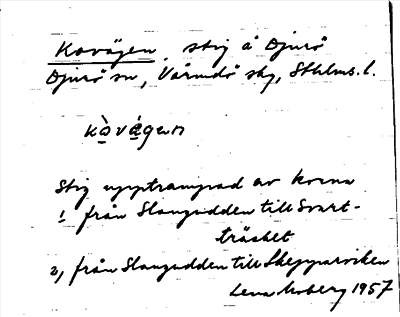 Kovägen stig å Djurö
Djurö sn, Värmdö skg, Sthlms. l.
kòvägen
Stig upptrampad av korna
1, från Slangudden till Svart-
träsket
2, från Slangudden till Skepparviken
Lena Moberg 1957